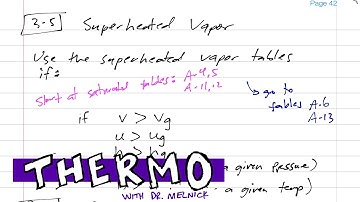 Page 42
3.5 Superheated Vapor
Use the superheated vapor tables
if:
start at saturated tables: A-4,5
A-11,12
go to
tables A-6
A-13
if v > vg
u > ug
h > hg
a given pressure)
THERMO
a given temp)
WITH DR. MELNICK